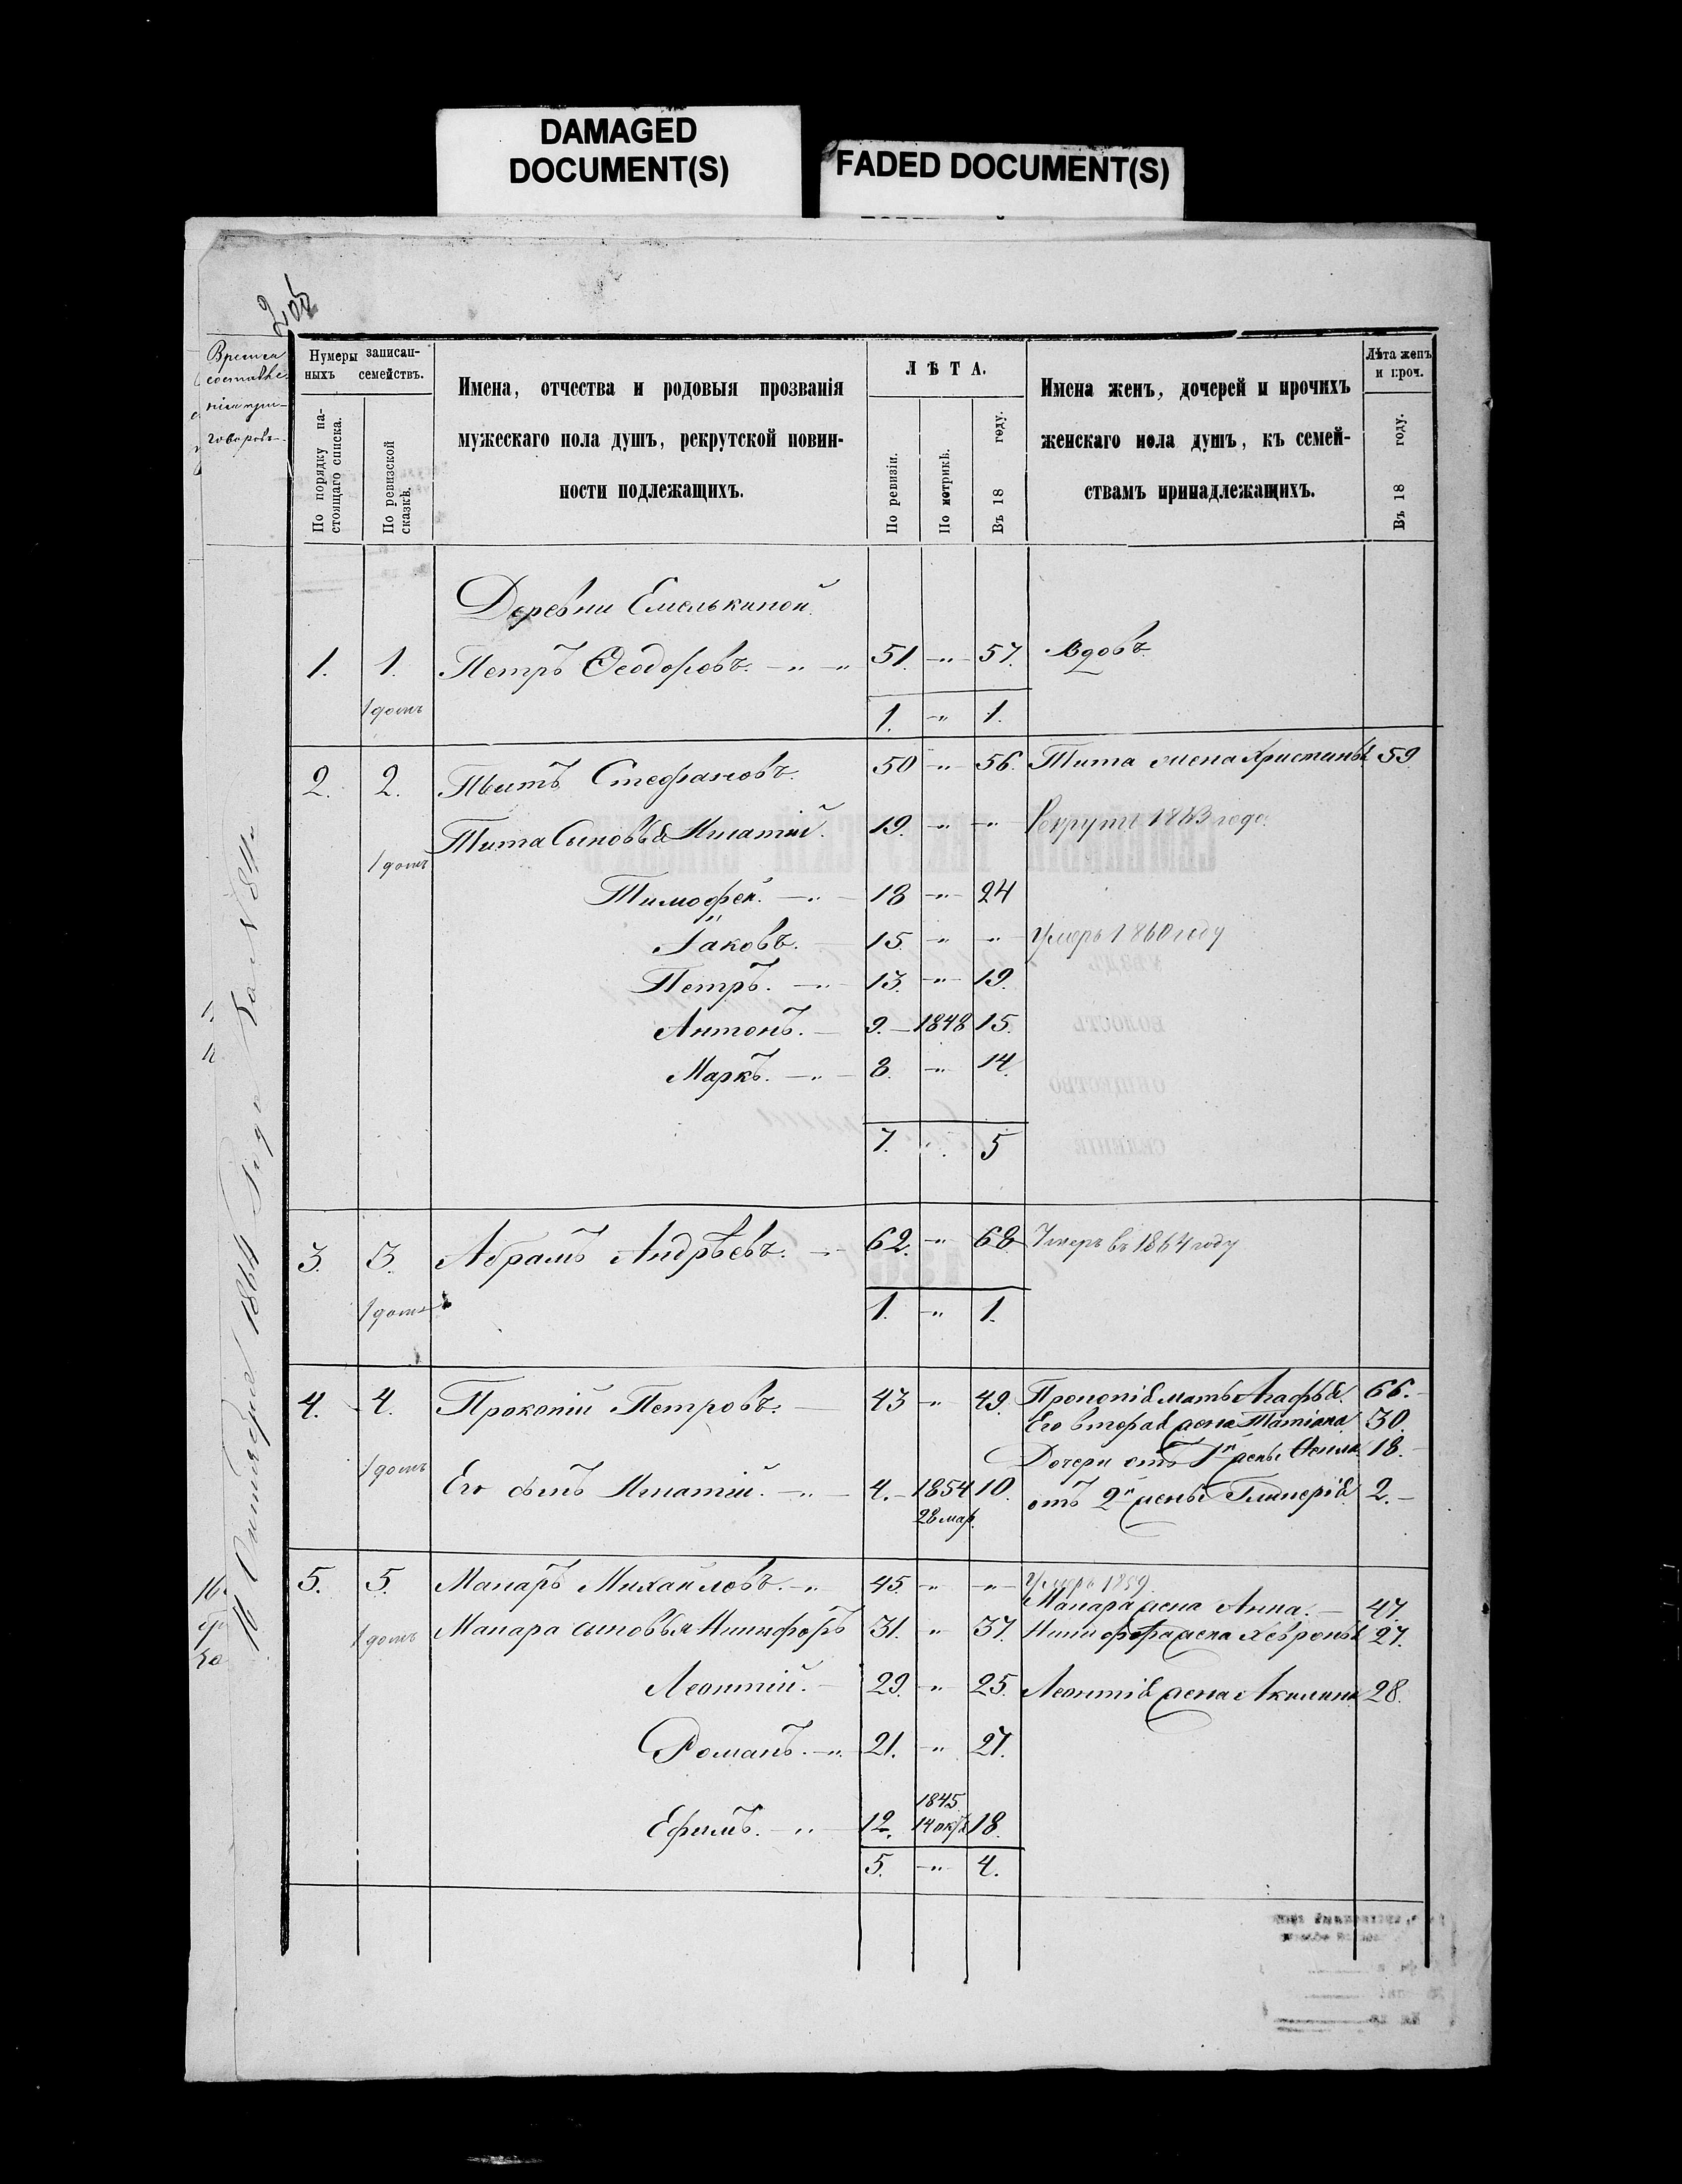 DAMAGED
DOCUMENT(S)
FADED DOCUMENT(S)
Время
составле-
нія при-
говоровъ
16 Октября 1864 Года
Нумеры записан-
ныхъ семействъ.
По порядку на-
стоящаго списка.
По ревизской
сказкѣ.
Имена, отчества и родовыя прозванія
мужескаго пола душъ, рекрутской повин-
ности подлежащихъ.
ЛѢТА.
По ревизіи.
По метрикѣ.
Въ 18 году.
Имена женъ, дочерей и прочихъ
женскаго пола душъ, къ семей-
ствамъ принадлежащихъ.
Лѣта женъ
и проч.
Въ 18 году.
Деревни Емелькиной
1. 1. Петръ Ѳеодоровъ. 51. -"- 57. Вдовъ
1 домъ 1. -"- 1.
2. 2. Титъ Стефановъ. 50 -"- 56. Тита жена Христинья 59
Тита Сыновья Игнатій. 19. -"- -"- Рекрутъ 1863 года
1 домъ
Тимофей. 18 -"- 24
Іаковъ. 15. -"- -"- Умеръ 1860 году
Петръ. 13. -"- 19.
Антонъ. 9. 1848 15.
Маркъ. 8. -"- 14.
7. " 5
3. 3. Абрамъ Андрѣевъ. 62. -"- 68 Умеръ въ 1864 году
1 домъ 1. -"- 1.
4. 4. Прокопій Петровъ. 43 -"- 49. Прокопія мать Агафья 66.
Его вторая жена Татіана 30.
Дочери отъ 1й жены 18.
1 домъ Его сынъ Игнатій. 4. 1854 10. отъ 2й жены Гликерія 2.
28 мар.
5. 5. Макаръ Михайловъ. 45. -"- -"- Умеръ 1859.
Макара жена Анна. 47.
1 домъ Макара сыновья Никифоръ 31. " 37. Никифора жена Хевронья 27.
Леонтій. 29. -"- 25. Леонтія жена Акилина 28.
Романъ. 21. -"- 27.
1845
Ефимъ. 12. 14 окт 18.
5. -"- 4.